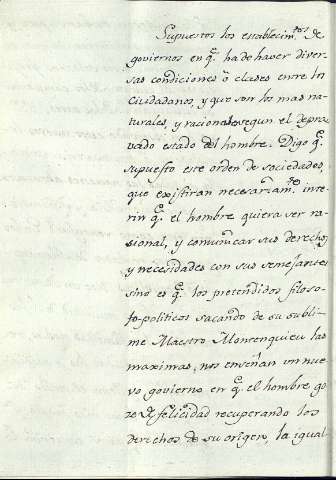 Supuestos los establecim.tos de
goviernos en q.e ha de haver diver-
sas condiciones ò clases entre los
Ciudadanos, y que son los mas na-
turales, y racionales segun el depra-
vado estado del hombre. Digo q.e
supuesto este orden de sociedades,
que existiran necesariam.te inte-
rin q.e el hombre quiera ser ra-
sional, y comunicar sus derechos,
y necesidades con sus semejantes
sino es q.e los pretendidos filoso-
fo-politicos sacando de su subli-
me Maestro Montenquieu las
maximas, nos enseñan un nue-
vo govierno en q.e el hombre go
ze de felicidad recuperando los
derechos de su origen, la igual-